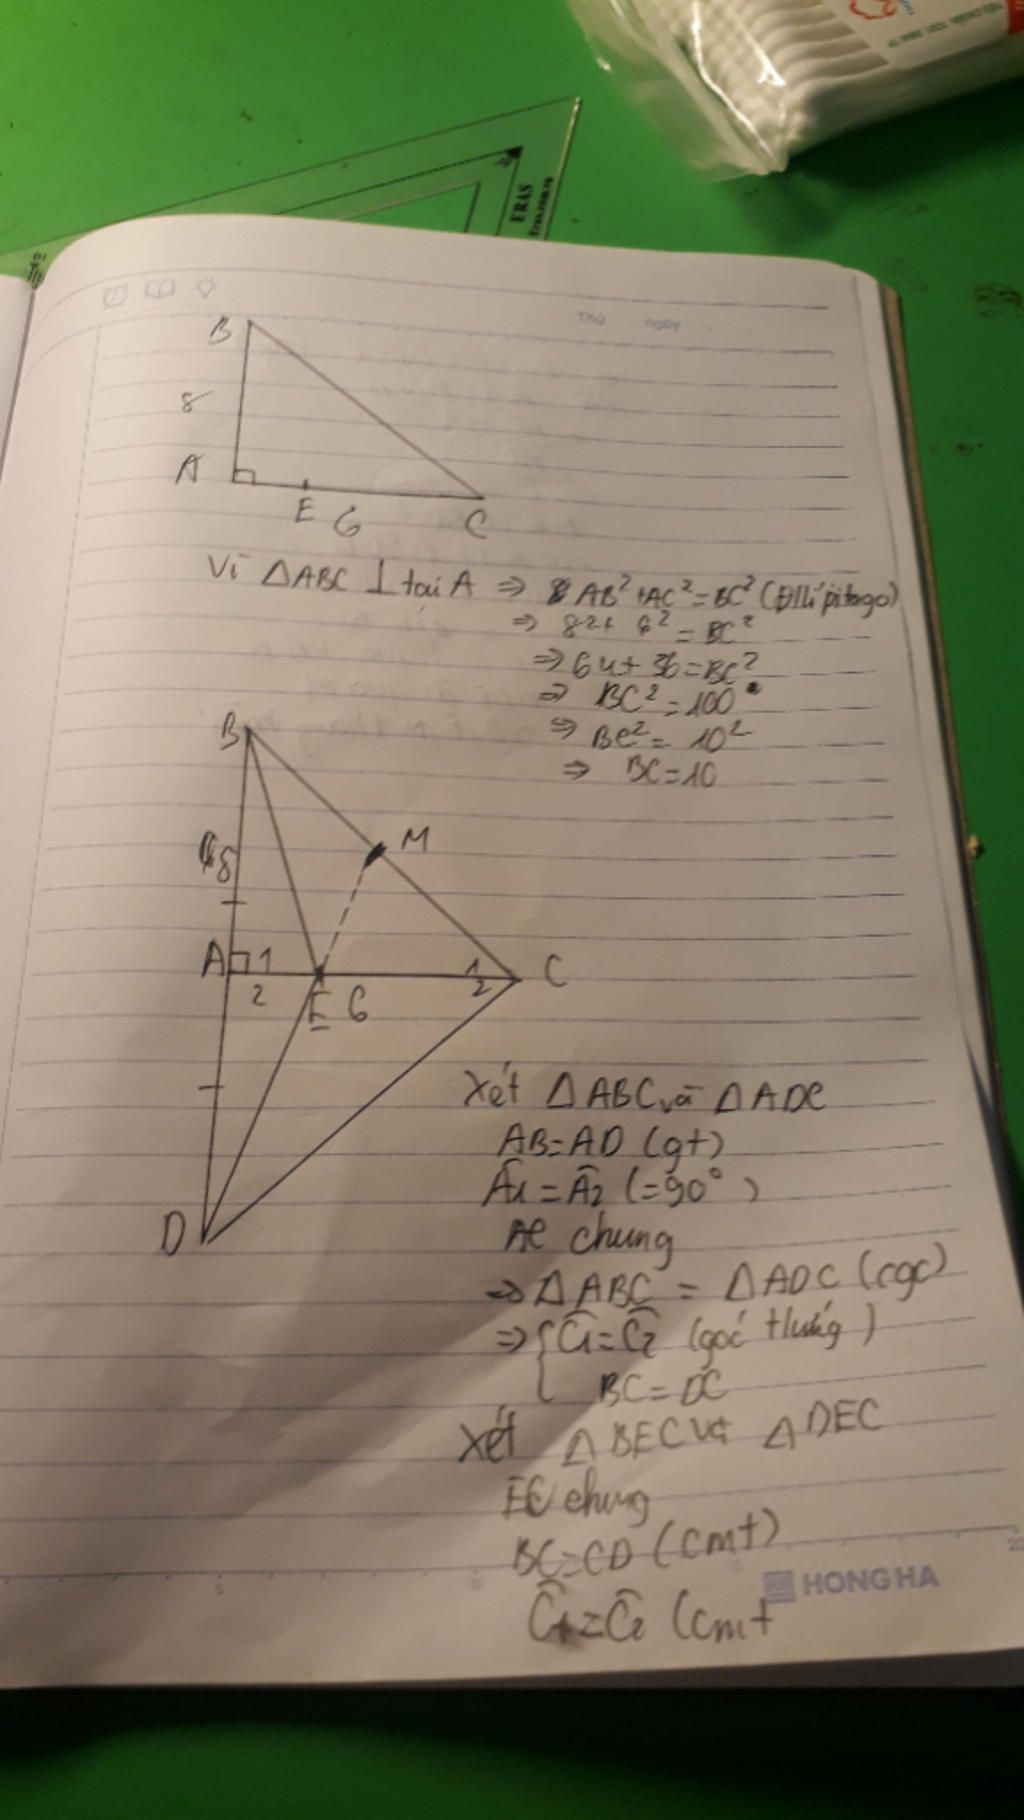 ERAS
Eras.com.vn
Thứ ngày
B
8
A
E 6 C
Vì ΔABC ⊥ tại A ⇒ AB² + AC² = BC² (Đ lí pitago)
⇒ 8² + 6² = BC²
⇒ 64 + 36 = BC²
⇒ BC² = 100
⇒ BC² = 10²
⇒ BC = 10
B
M
8
A 1 1 C
2 2
E 6
D
Xét ΔABC và ΔADC
AB = AD (gt)
Â1 = Â2 (= 90°)
AC chung
⇒ ΔABC = ΔADC (cgc)
⇒ { Ĉ1 = Ĉ2 (góc tướng)
BC = DC
Xét Δ BEC và Δ DEC
EC chung
BC = CD (cmt)
Ĉ1 = Ĉ2 (cmt
5 10 15 20
HONG HA